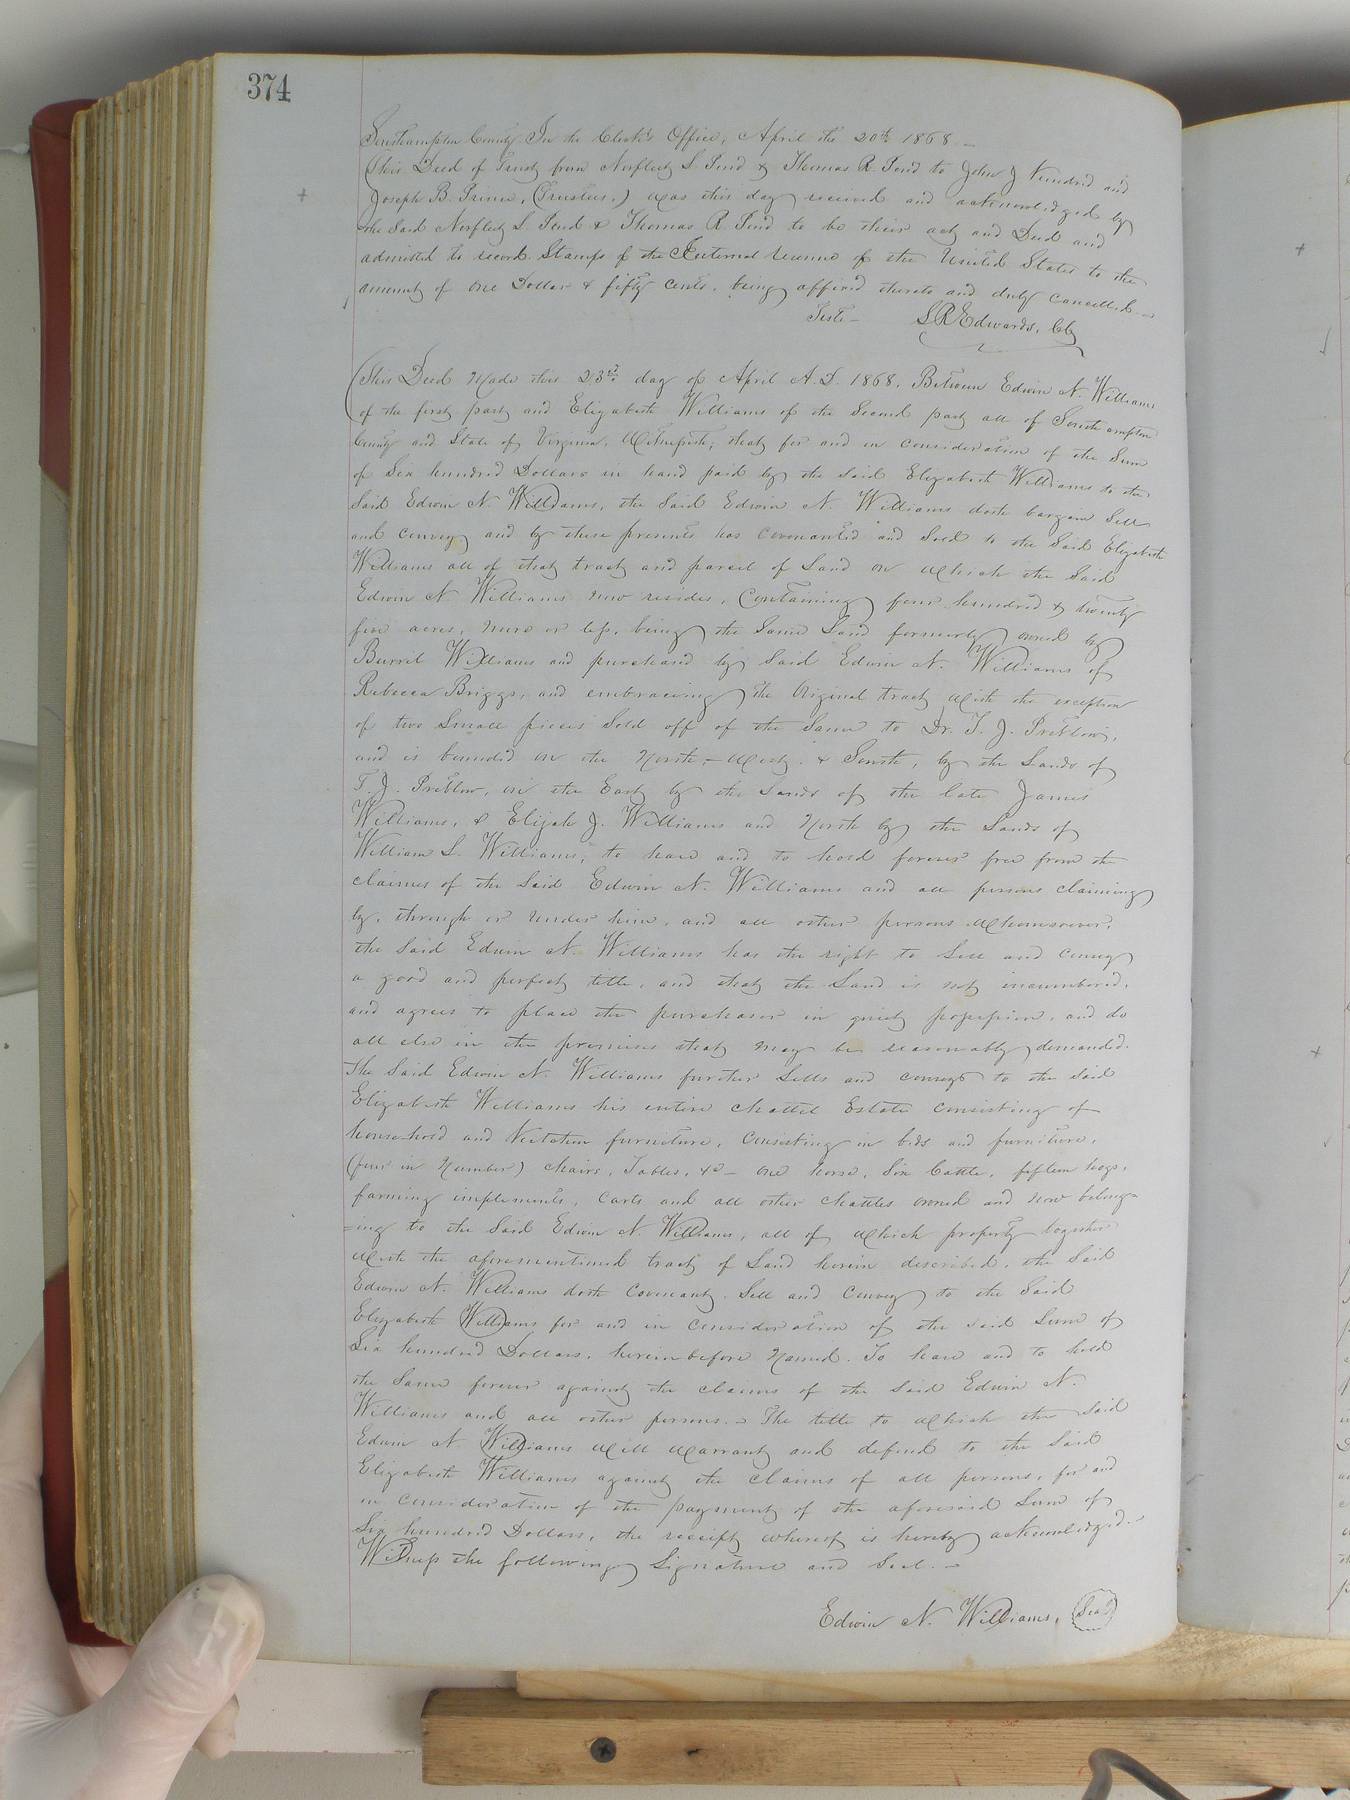 374
Southampton County. In the Clerk's Office, April the 20th 1868.—
This Deed of Trust from Norfleet S. Pond & Thomas R. Pond to John J Kindred and
Joseph B. Prince, (Trustees,) was this day received and acknowledged by
the Said Norfleet S. Pond & Thomas R. Pond to be their act and Deed and
admitted to record Stamps of the Internal revenue of the United States to the
amount of one Dollar & fifty cents, being affixed thereto and duly cancelled.—
Teste— LR Edwards, Clk
This Deed Made this 23rd day of April A.D. 1868, Between Edwin N. Williams
of the first part and Elizabeth Williams of the Second part all of Southampton
County and State of Virginia, Witnesseth; that for and in consideration of the Sum
of Six hundred Dollars in hand paid by the Said Elizabeth Williams to the
Said Edwin N. Williams, the Said Edwin N. Williams doth bargain Sell
and convey and by these presents has covenanted and Sold to the Said Elizabeth
Williams all of that tract and parcel of Land on which the Said
Edwin N. Williams now resides, Containing four hundred & twenty
five acres, more or less, being the Same Land formerly owned by
Burril Williams and purchased by Said Edwin N. Williams of
Rebecca Briggs, and embracing the Original tract with the exception
of two Small pieces Sold off of the Same to Dr. T. J. Pretlow,
and is bounded on the North,— West, & South, by the Lands of
T. J. Pretlow, on the East by the Lands of the late James
Williams, & Elijah J. Williams and North by the Lands of
William S. Williams, to have and to hold forever free from the
claims of the Said Edwin N. Williams and all persons claiming
by, through or under him, and all other persons Whomsoever,
the Said Edwin N. Williams has the right to Sell and convey
a good and perfect title, and that the Land is not incumbered,
and agrees to place the purchaser in quiet possession, and do
all else in the premises that may be reasonably demanded.
The Said Edwin N. Williams further Sells and conveys to the Said
Elizabeth Williams his entire chattel Estate consisting of
household and Kitchen furniture, Consisting in beds and furniture,
(four in Number) chairs, Tables, &c— one horse, Six Cattle, fifteen hogs,
farming implements, Carts and all other chattles owned and now belong=
=ing to the Said Edwin N. Williams, all of which property together
With the aforementioned tract of Land herein described, the Said
Edwin N. Williams doth Covenant, Sell and Convey to the Said
Elizabeth Williams for and in consideration of the said Sum of
Six hundred Dollars, herein before Named. To have and to hold
the Same forever against the claims of the Said Edwin N.
Williams and all other persons.— The title to which the Said
Edwin N Williams will warrant and defend to the Said
Elizabeth Williams against the claims of all persons, for and
in consideration of the payment of the aforesaid Sum of
Six hundred Dollars, the receipt whereof is hereby acknowledged.—
Witness the following Signature and Seal.—
Edwin N. Williams, Seal